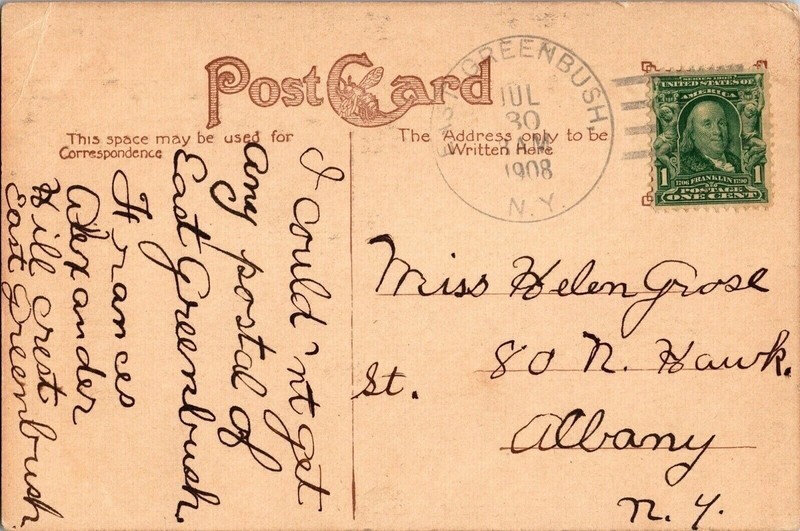 Post Card
This space may be used for
Correspondence
The Address only to be
Written Here
EAST GREENBUSH
JUL
30
AM
1908
N.Y.
SERIES 1902
UNITED STATES OF
AMERICA
1706 FRANKLIN 1790
1 POSTAGE 1
ONE CENT
I could'nt get
any postal of
East Greenbush.
Frances
Alexander
Hill crest
East Greenbush
Miss Helen Grose
80 N. Hawk.
St.
Albany
N. Y.